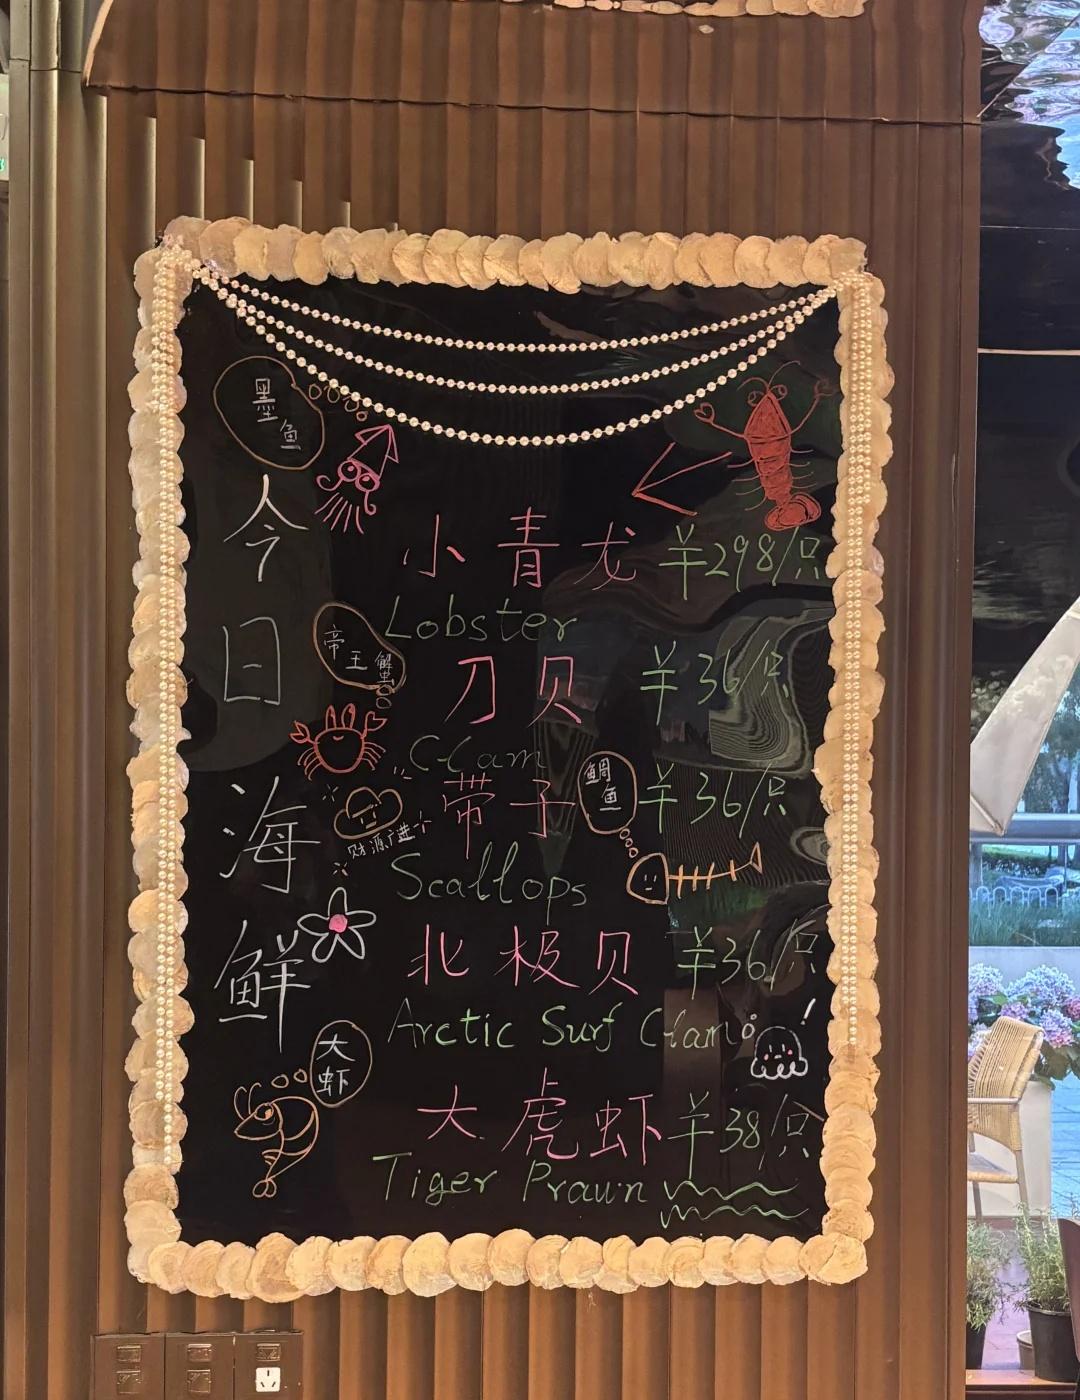 墨鱼
今日海鲜
小青龙 ¥298/只
Lobster
帝王蟹
刀贝 ¥36/只
Clam
带子 ¥36/只
鲷鱼
财源广进
Scallops
北极贝 ¥36/只
Arctic Surf Clam
大虾
大虎虾 ¥38/只
Tiger Prawn